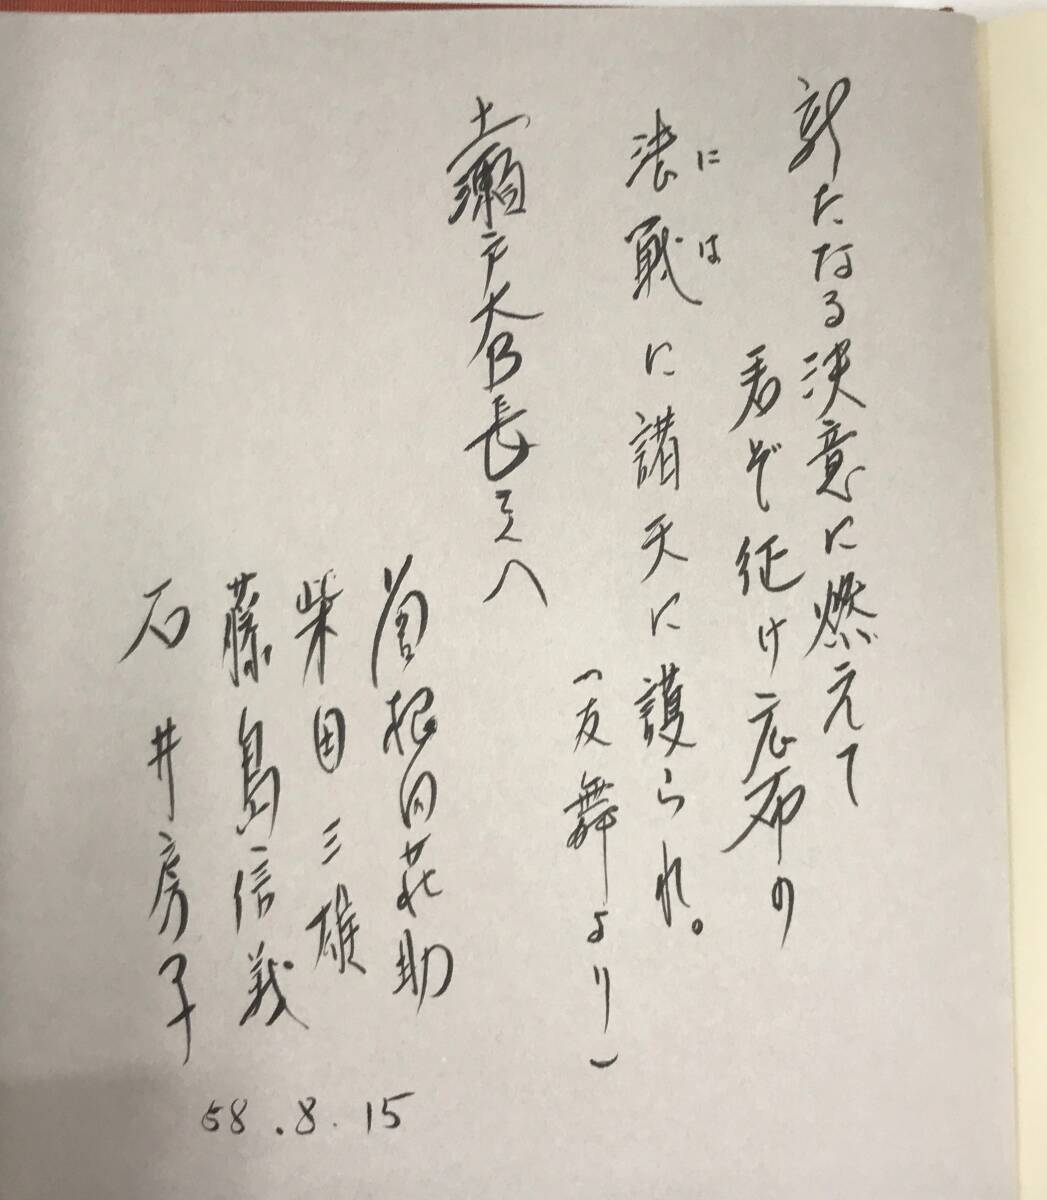 新たなる決意に燃えて
君ぞ征け広布の
にはは
法戦に諸天に護られ。
(友舞より)
土瀬戸大B長さんへ
曽根田花助
柴田三雄
藤島信義
石井房子
58.8.15